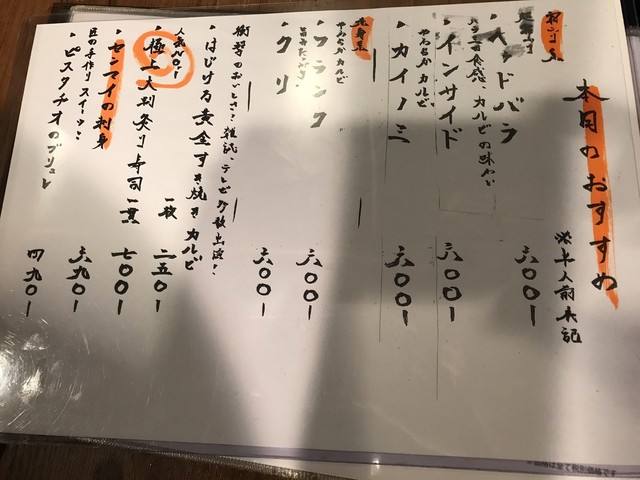 本日のおすすめ
※半人前表記
六〇〇ー
食感、カルビの味わい
・インサイド 六〇〇ー
やわらかカルビ
・カイノミ 六〇〇ー
赤身系
やわらかカルビ
・フランク 六〇〇ー
・クリ 六〇〇ー
衝撃のおいしさ!雑誌、テレビ多数出演!
・はじける黄金すき焼きカルビ 一枚 二五〇ー
人気No.1
・極上大判炙り寿司 一貫 七〇〇ー
・センマイの刺身 六九〇ー
匠の手作りスイーツ!
・ピスタチオのブリュレ 四九〇ー
※価格は全て税別価格です